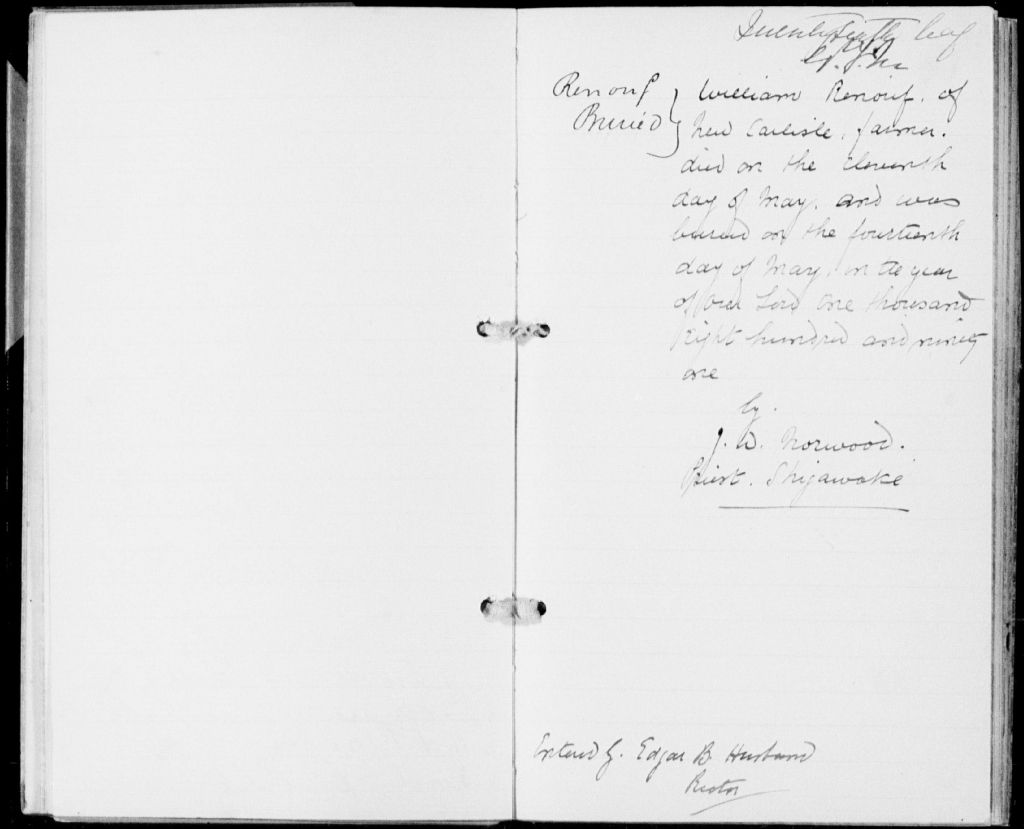 Twenty sixth leaf
Renouf
Buried
William Renouf, of
New Carlisle, farmer.
died on the eleventh
day of May, and was
buried on the fourteenth
day of May, in the year
of Our Lord One thousand
Eight hundred and ninety
one
by.
J. W. Norwood.
Priest. Shigawake
Entered by. Edgar B. Husband
Rector